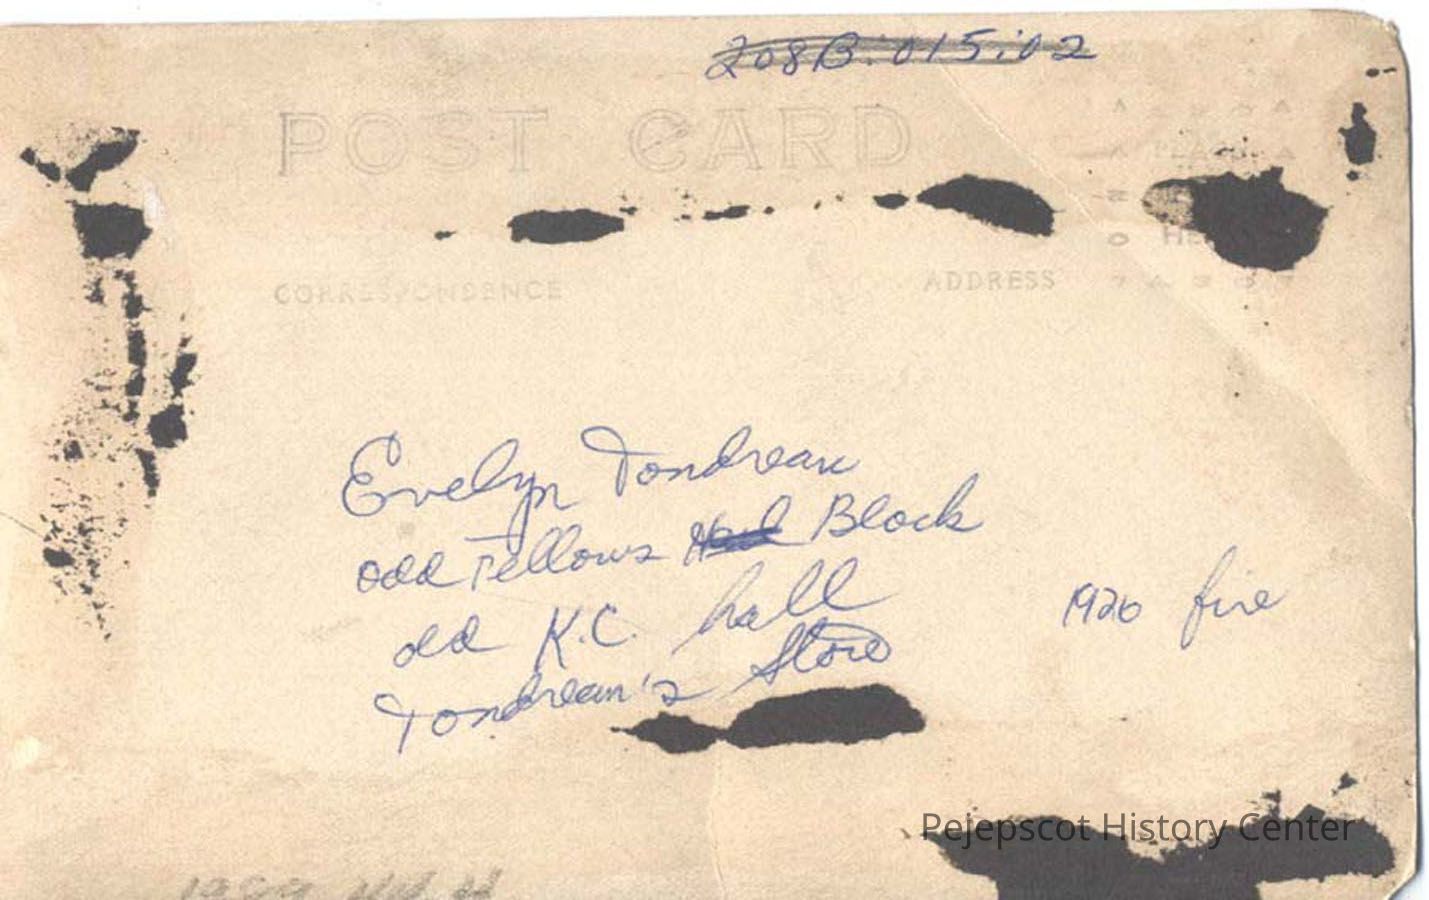 208B.015.02
POST CARD
CORRESPONDENCE
ADDRESS
Evelyn Tondreau
odd Fellows Block
old K.C. hall
Tondreau's Store
1920 fire
Pejepscot History Center